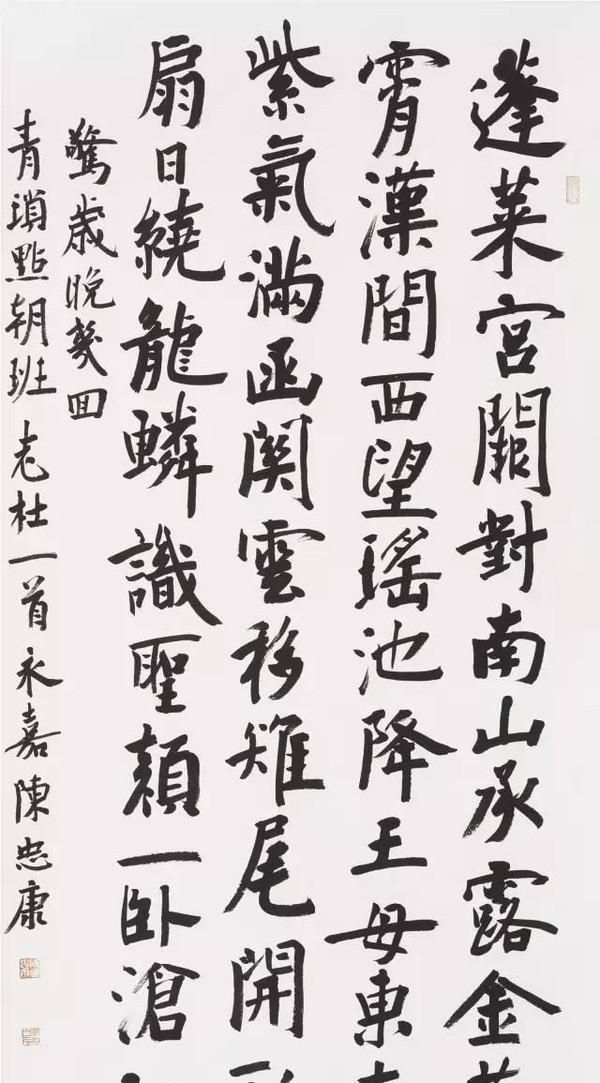 蓬萊宮闕對南山承露金
霄漢間西望瑤池降王母東
紫氣滿函関雲移雉尾開
扇日繞龍鱗識聖顏一卧滄
驚歲晚幾回
青瑣點朝班老杜一首永嘉陳忠康